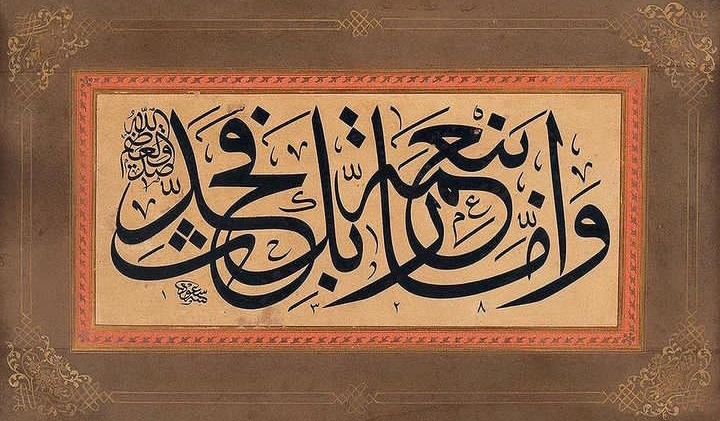 وَامَّا بنعمة رَبّك فحدّث
صدق الله العظيم
١٣٢٨